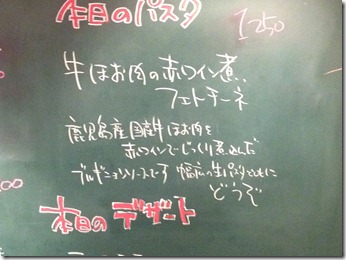 本日のパスタ
1250
牛ほお肉の赤ワイン煮
フェトチーネ
鹿児島産国産牛ほお肉を
赤ワインでじっくり煮込んだ
ブルギニョンソースです 幅広の生パスタとともに
どうぞ
00
本日のデザート